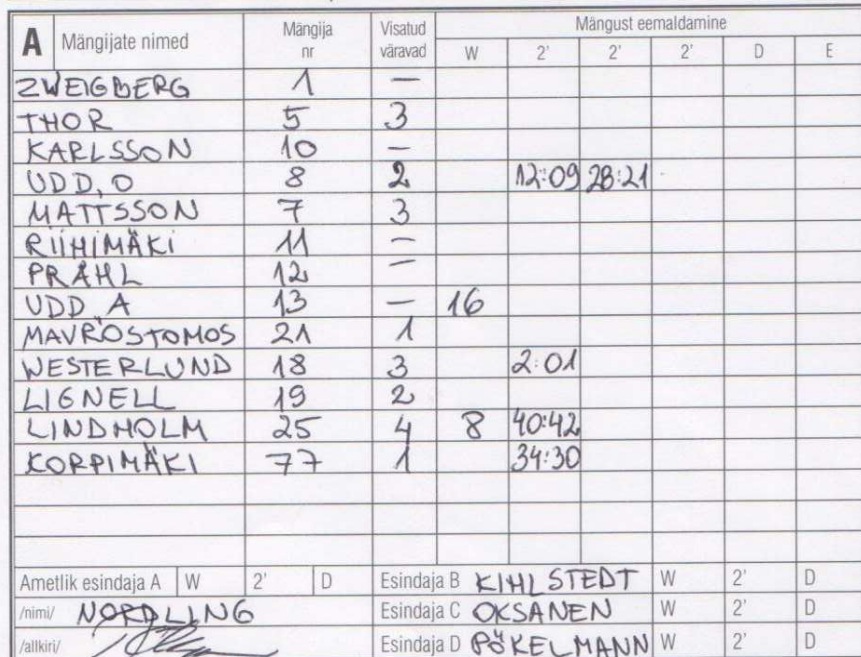 A Mängijate nimed Mängija nr Visatud väravad Mängust eemaldamine
W 2' 2' 2' D E
ZWEIGBERG 1 —
THOR 5 3
KARLSSON 10 —
UDD, O 8 2 12:09 28:21
MATTSSON 7 3
RIIHIMÄKI 11 —
PRÅHL 12 —
UDD A 13 — 16
MAVROSTOMOS 21 1
WESTERLUND 18 3 2:01
LIGNELL 19 2
LINDHOLM 25 4 8 40:42
KORPIMÄKI 77 1 34:30
Ametlik esindaja A W 2' D Esindaja B KIHLSTEDT W 2' D
/nimi/ NORDLING Esindaja C OKSANEN W 2' D
/allkiri/ Esindaja D PÖKELMANN W 2' D